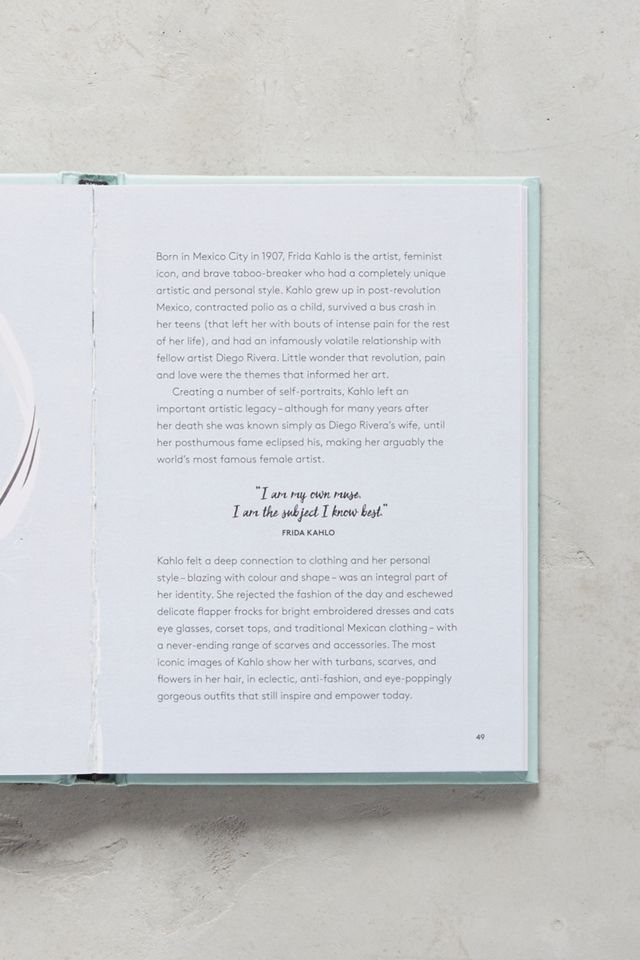 Born in Mexico City in 1907, Frida Kahlo is the artist, feminist
icon, and brave taboo-breaker who had a completely unique
artistic and personal style. Kahlo grew up in post-revolution
Mexico, contracted polio as a child, survived a bus crash in
her teens (that left her with bouts of intense pain for the rest
of her life), and had an infamously volatile relationship with
fellow artist Diego Rivera. Little wonder that revolution, pain
and love were the themes that informed her art.
Creating a number of self-portraits, Kahlo left an
important artistic legacy – although for many years after
her death she was known simply as Diego Rivera's wife, until
her posthumous fame eclipsed his, making her arguably the
world's most famous female artist.
"I am my own muse.
I am the subject I know best."
FRIDA KAHLO
Kahlo felt a deep connection to clothing and her personal
style – blazing with colour and shape – was an integral part of
her identity. She rejected the fashion of the day and eschewed
delicate flapper frocks for bright embroidered dresses and cats
eye glasses, corset tops, and traditional Mexican clothing – with
a never-ending range of scarves and accessories. The most
iconic images of Kahlo show her with turbans, scarves, and
flowers in her hair, in eclectic, anti-fashion, and eye-poppingly
gorgeous outfits that still inspire and empower today.
49